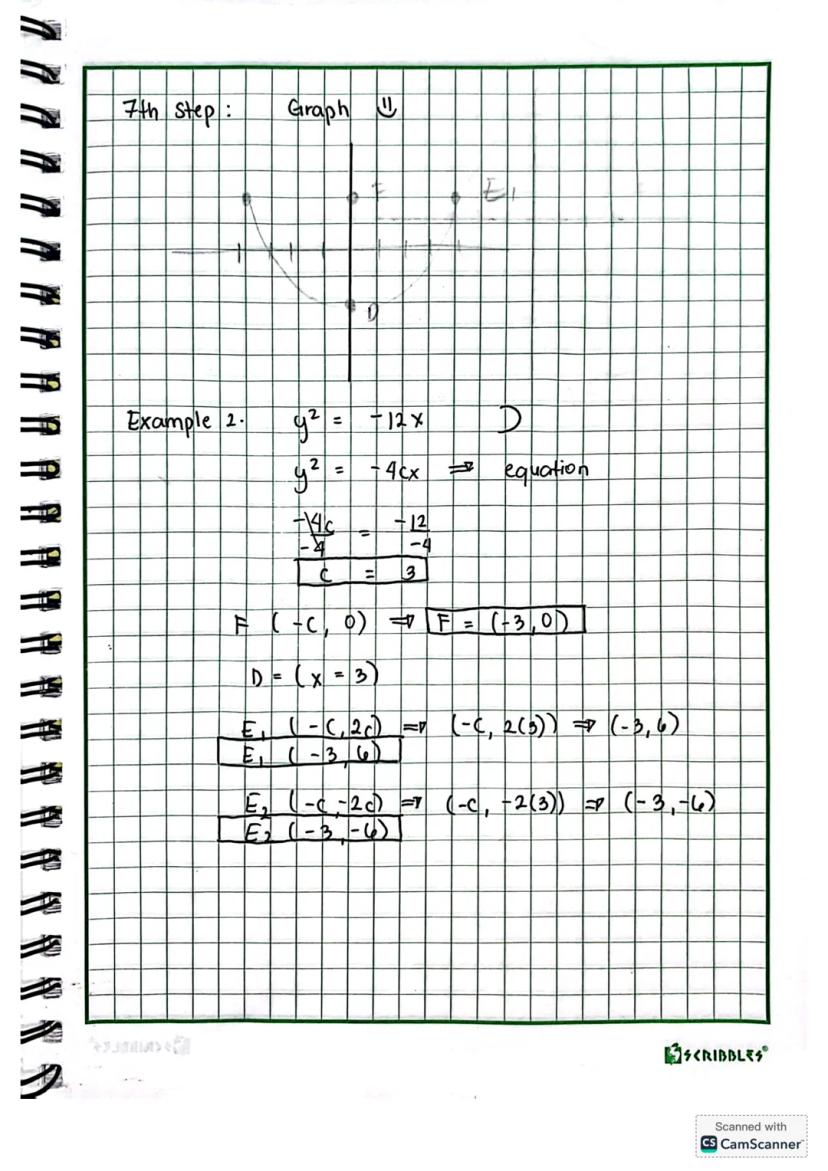 7th Step : Graph
F E₁
D
Example 2. y² = -12x
y² = -4cx ⇒ equation
-4c/-4 = -12/-4
c = 3
F (-c, 0) ⇒ F = (-3,0)
D = (x = 3)
E₁ (-c, 2c) ⇒ (-c, 2(3)) ⇒ (-3,6)
E₁ (-3, 6)
E₂ (-c, -2c) ⇒ (-c, -2(3)) ⇒ (-3,-6)
E₂ (-3, -6)
SCRIBBLES®
Scanned with
CS CamScanner